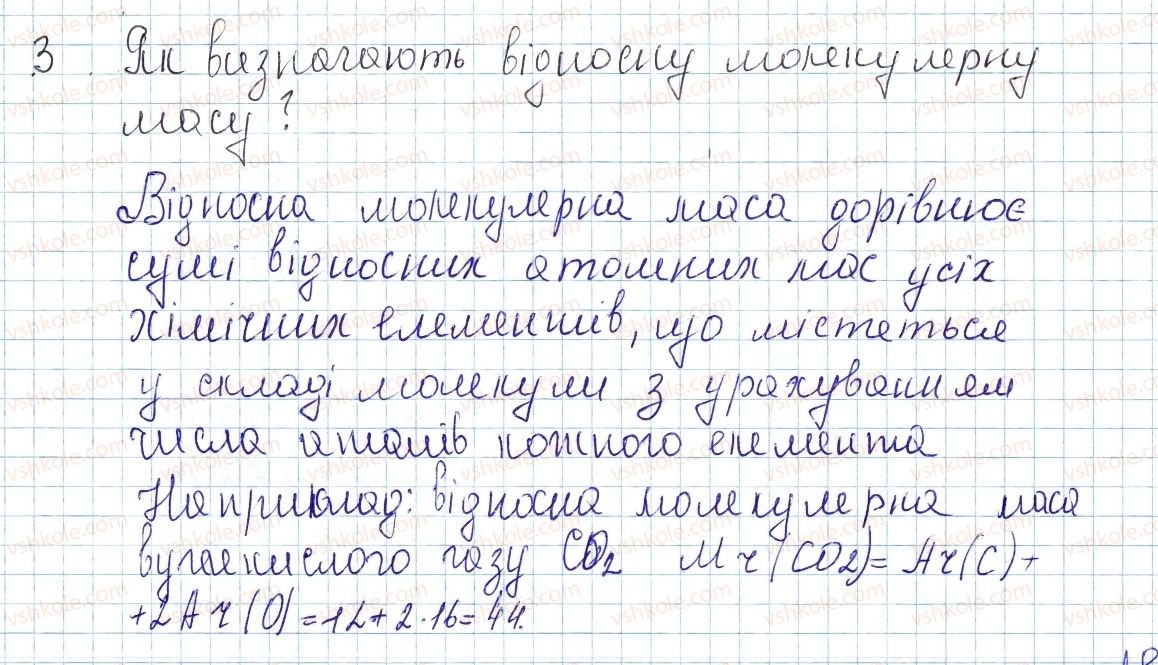 3. Як визначають відносну молекулярну
масу?
Відносна молекулярна маса дорівнює
сумі відносних атомних мас усіх
хімічних елементів, що містяться
у складі молекули з урахуванням
числа атомів кожного елемента
Наприклад: відносна молекулярна маса
вуглекислого газу CO2 Mr(CO2)= Ar(C)+
+2Ar(O)=12+2·16=44.